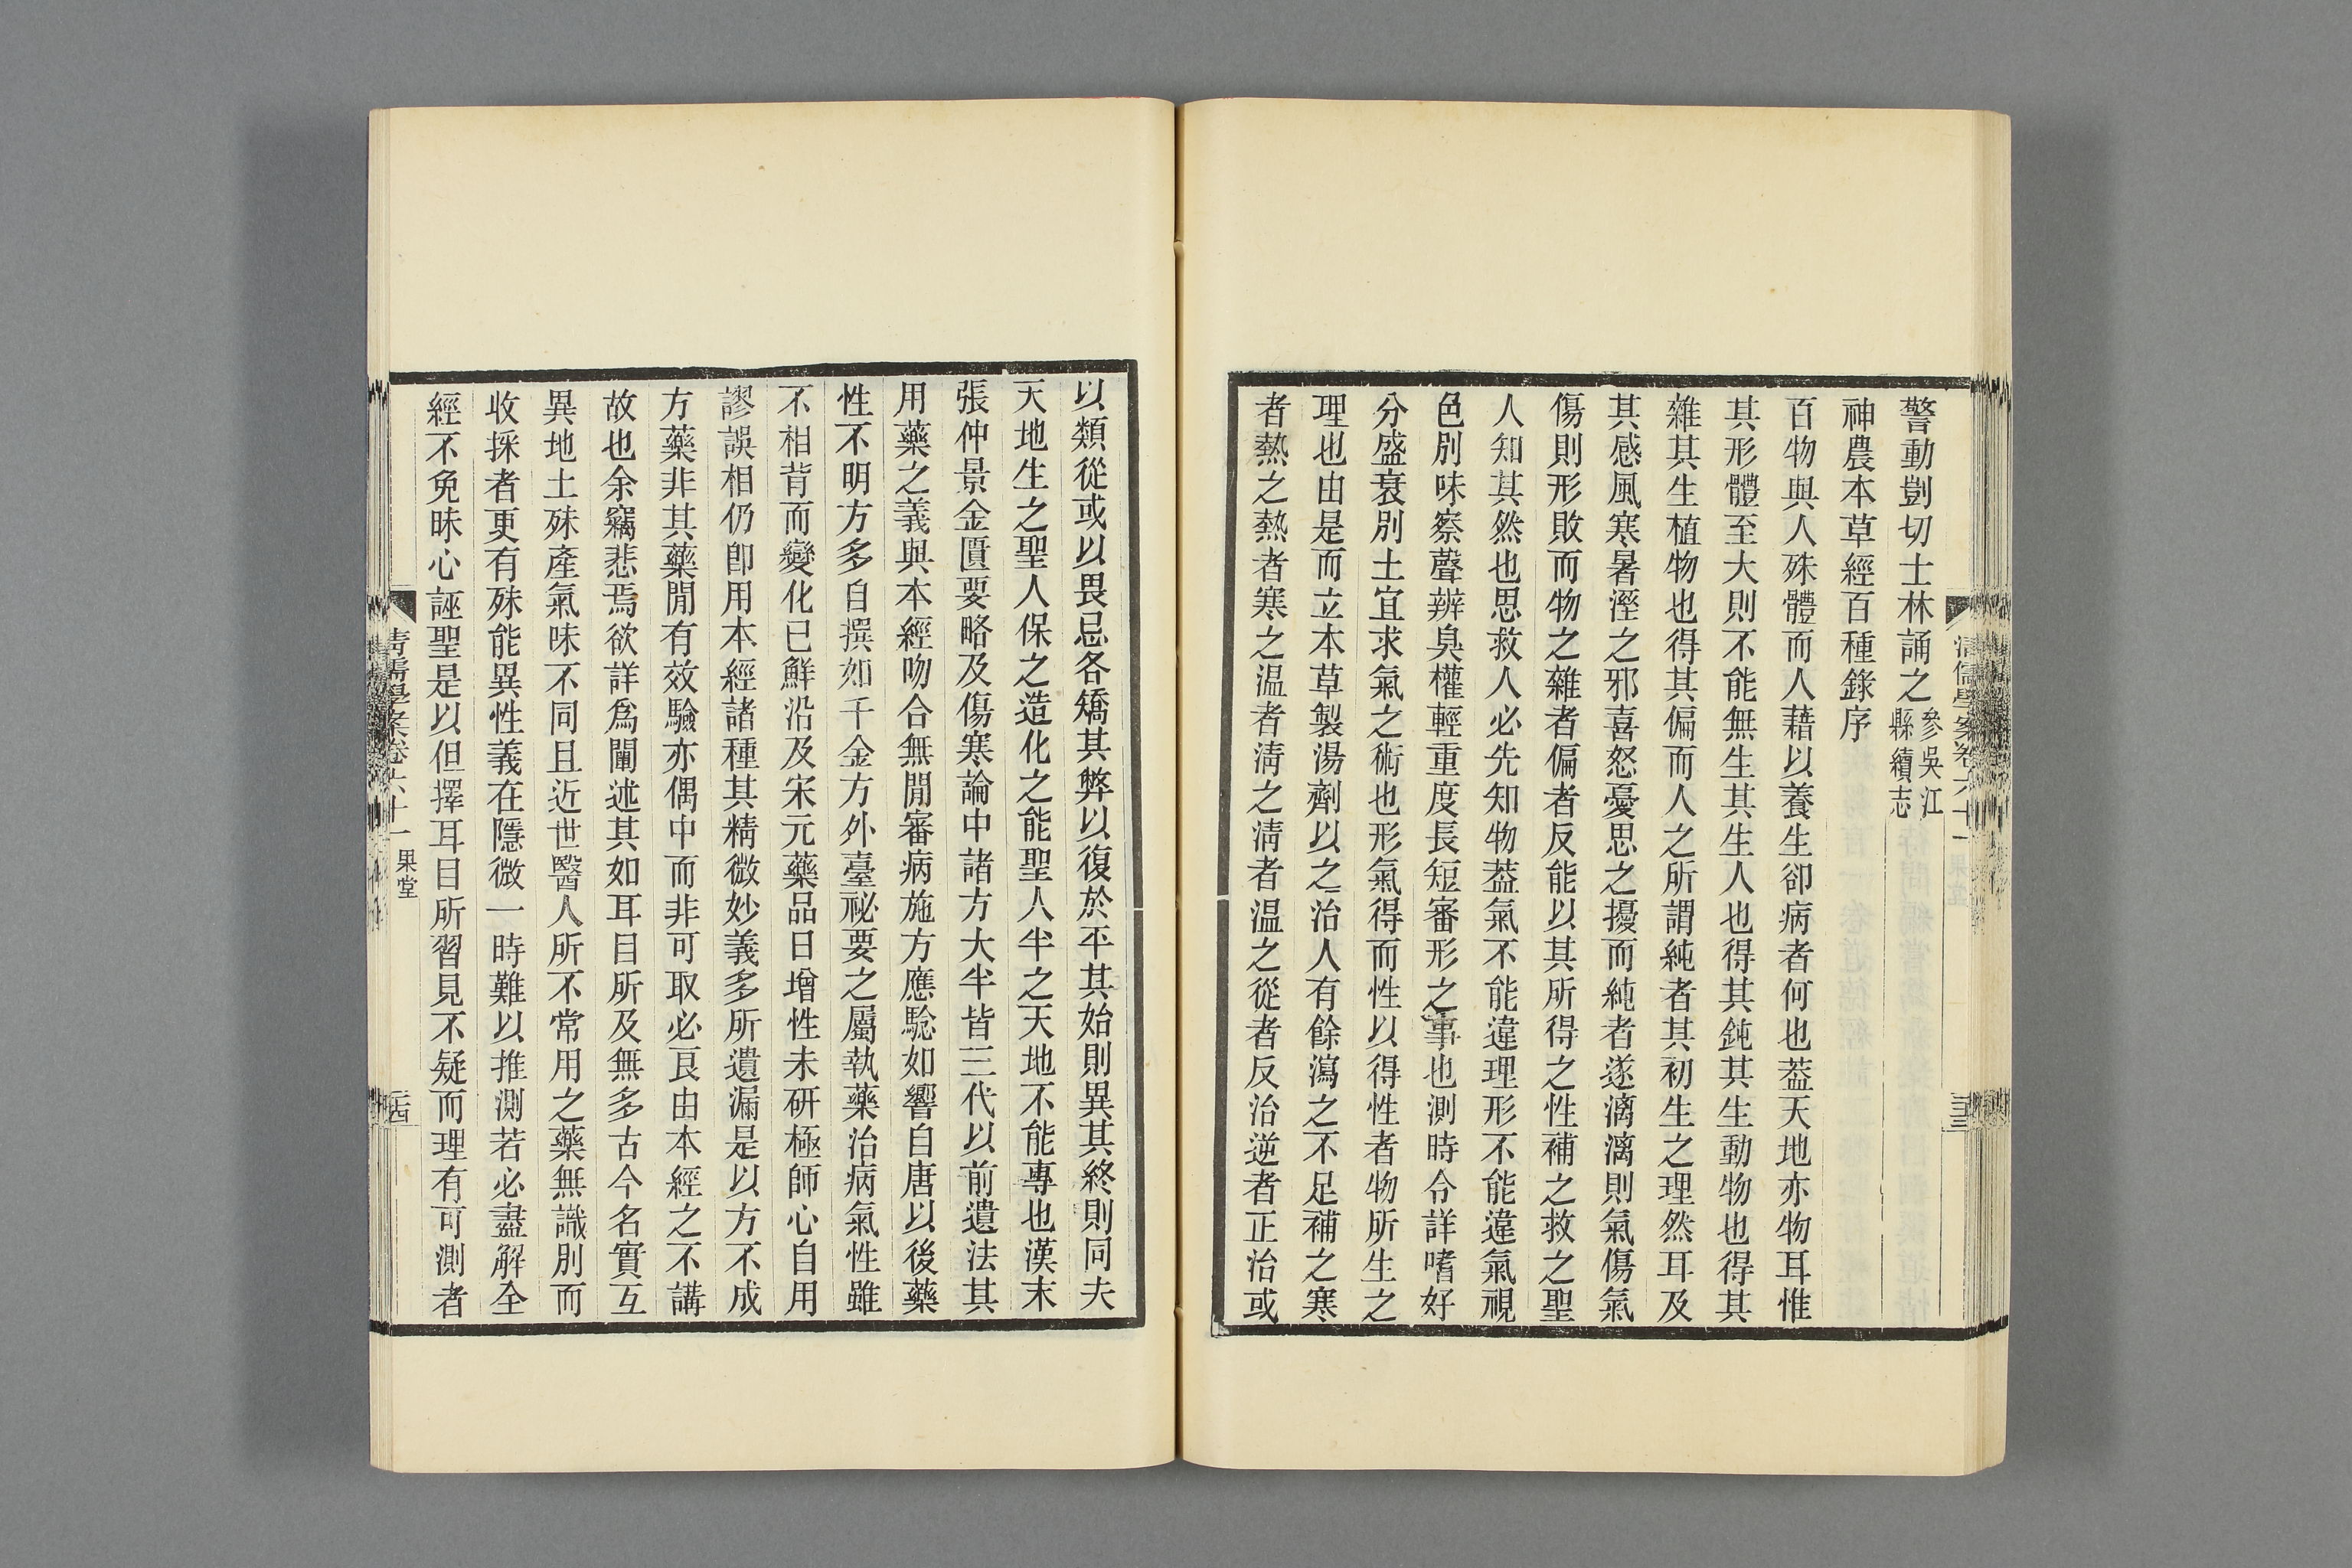 警動剴切士林誦之參吳江縣續志
神農本草經百種錄序
百物與人殊體而人藉以養生卻病者何也葢天地亦物耳惟
其形體至大則不能無生其生人也得其鈍其生動物也得其
雜其生植物也得其偏而人之所謂純者其初生之理然耳及
其感風寒暑溼之邪喜怒憂思之擾而純者遂漓漓則氣傷氣
傷則形敗而物之雜者偏者反能以其所得之性補之救之聖
人知其然也思救人必先知物葢氣不能違理形不能違氣視
色別味察聲辨臭權輕重度長短審形之事也測時令詳嗜好
分盛衰別土宜求氣之術也形氣得而性以得性者物所生之
理也由是而立本草製湯劑以之治人有餘瀉之不足補之寒
者熱之熱者寒之温者淸之淸者温之從者反治逆者正治或
以類從或以畏忌各矯其弊以復於平其始則異其終則同夫
天地生之聖人保之造化之能聖人半之天地不能專也漢末
張仲景金匱要略及傷寒論中諸方大半皆三代以前遺法其
用藥之義與本經吻合無閒審病施方應騐如響自唐以後藥
性不明方多自撰如千金方外臺祕要之屬執藥治病氣性雖
不相背而變化已鮮沿及宋元藥品日增性未硏極師心自用
謬誤相仍卽用本經諸種其精微妙義多所遺漏是以方不成
方藥非其藥閒有效驗亦偶中而非可取必良由本經之不講
故也余竊悲焉欲詳爲闡述其如耳目所及無多古今名實互
異地土殊產氣味不同且近世醫人所不常用之藥無識別而
收採者更有殊能異性義在隱微一時難以推測若必盡解全
經不免昧心誣聖是以但擇耳目所習見不疑而理有可測者
淸儒學案卷六十一 果堂 二十四